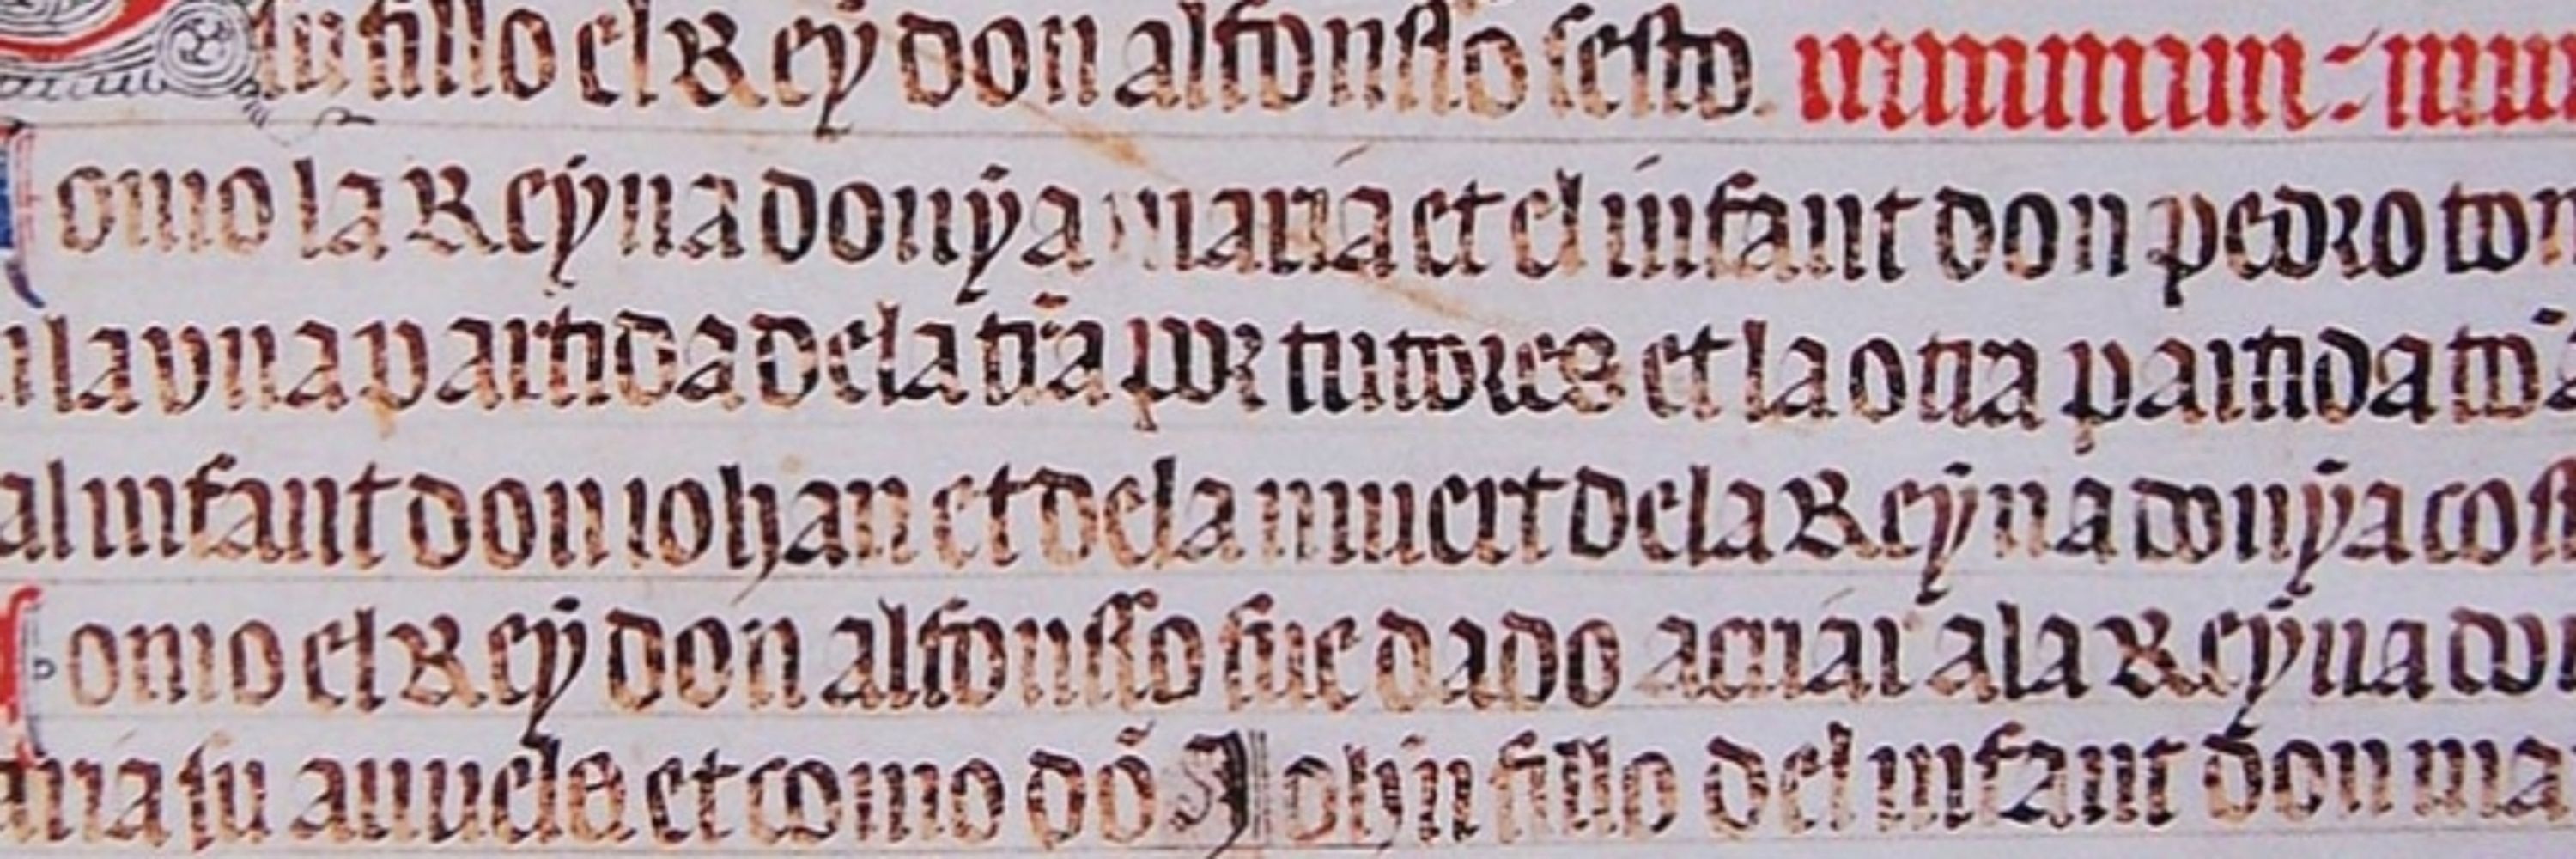 su fillo el Rey don alfonsso sesto.
omo la Reyna donya maria et el infant don pedro tom
la vna partida dela tr̃a por tutores et la otra partida
al infant don iohan et dela muert dela Reyna donya cost
omo el Rey don alfonsso fue dado acriar ala Reyna do
su auuela et como dō Iohn fillo del infant don ma